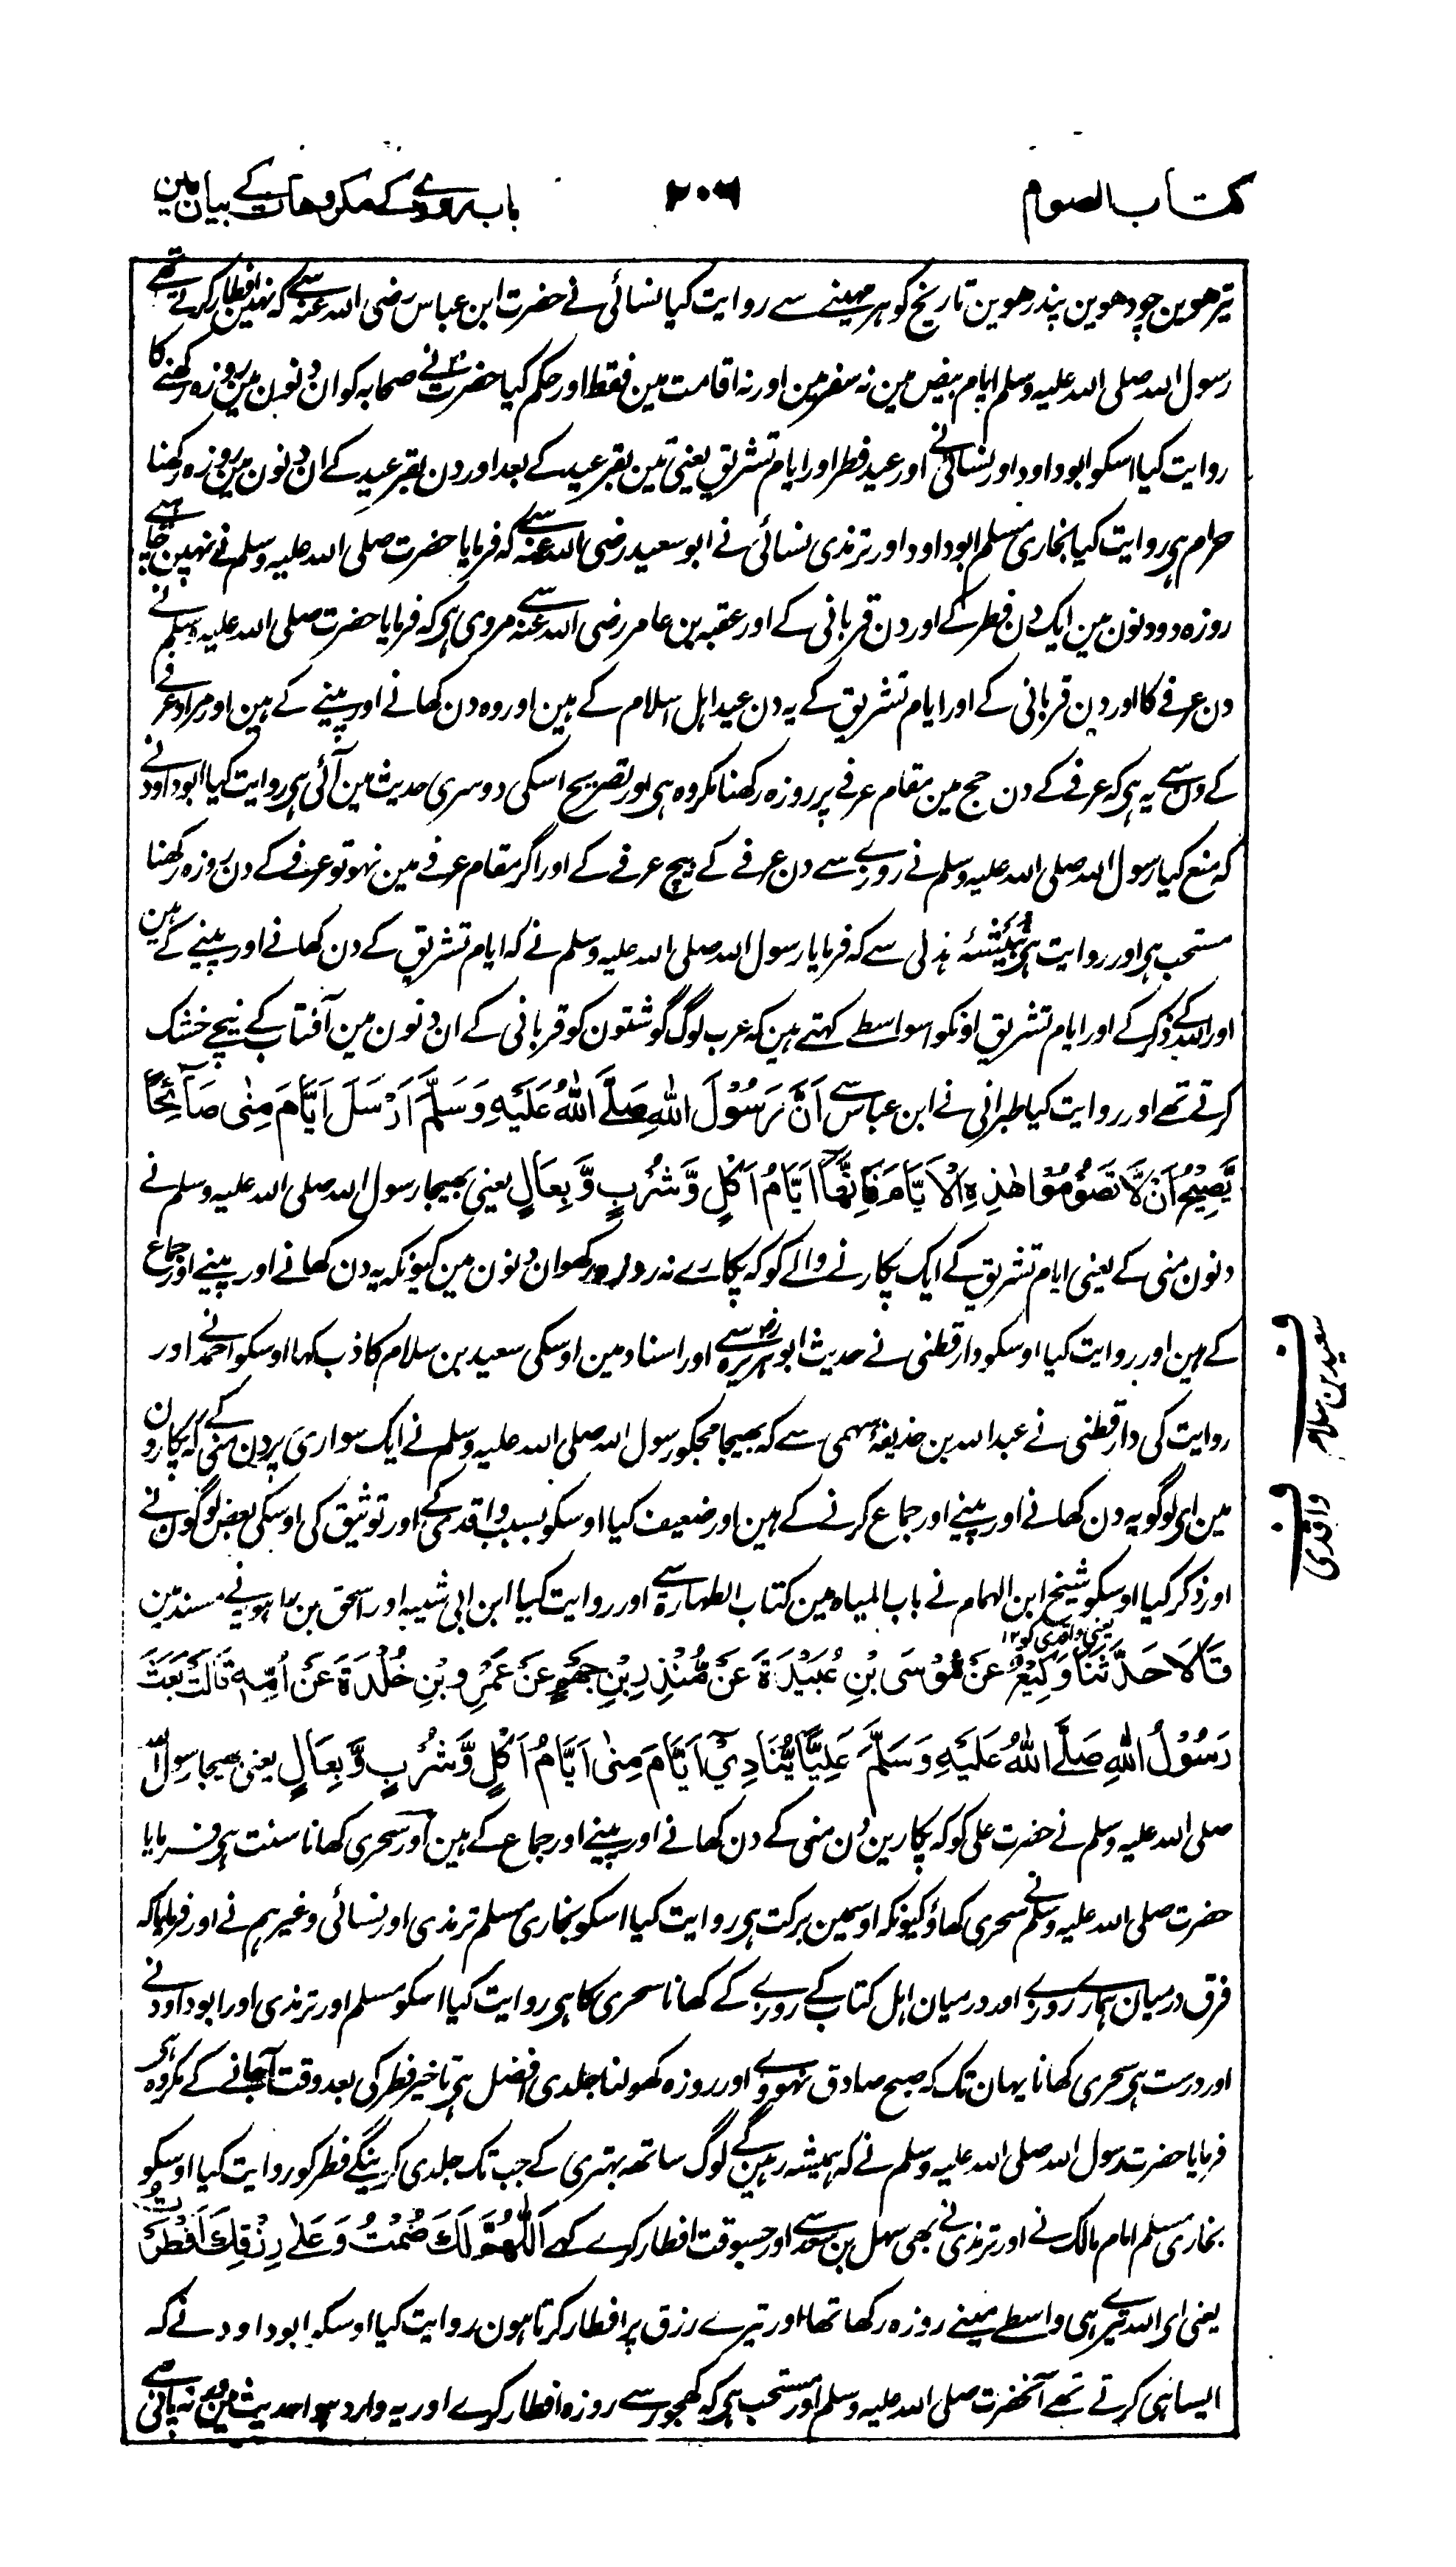 کتاب الصوم ۲۰۶ باب روزے کے مکروہات کے بیان مین
تیرھوین چودھوین پندرھوین تاریخ کو ہر مہینے سے روایت کیا نسائی نے حضرت ابن عباس رضی اللہ عنہ سے کہ نہین افطار کرتے تھے
رسول اللہ صلی اللہ علیہ وسلم ایام بیض مین نہ سفر مین اور نہ اقامت مین فقط اور حکم کیا حضرت نے صحابہ کو ان دنون مین روزہ رکھنے کا
روایت کیا اسکو ابو داود اور نسائی نے اور عید فطر اور ایام تشریق یعنی تین بقر عید کے بعد اور دن بقر عید کے ان دنون مین روزہ رکھنا
حرام ہی روایت کیا بخاری مسلم ابو داود اور ترمذی نسائی نے ابو سعید رضی اللہ عنہ سے کہ فرمایا حضرت صلی اللہ علیہ وسلم نے نہین چاہیے
روزہ دو دنون مین ایک دن فطر کے اور دن قربانی کے اور عقبہ بن عامر رضی اللہ عنہ سے مروی ہی کہ فرمایا حضرت صلی اللہ علیہ وسلم نے
دن عرفے کا اور دن قربانی کے اور ایام تشریق کے یہ دن عید اہل اسلام کے ہین اور وہ دن کھانے اور پینے کے ہین اور مراد عرفے
کے دن سے یہ ہی کہ عرفے کے دن حج مین مقام عرفے پر روزہ رکھنا مکروہ ہی اور تصریح اسکی دوسری حدیث مین آئی ہی روایت کیا ابو داود نے
کہ منع کیا رسول اللہ صلی اللہ علیہ وسلم نے روزے سے دن عرفے کے بیچ عرفے کے اور اگر مقام عرفے مین نہو تو عرفے کے دن روزہ رکھنا
مستحب ہی اور روایت ہی نُبَیْشَہ ہذلی سے کہ فرمایا رسول اللہ صلی اللہ علیہ وسلم نے کہ ایام تشریق کے دن کھانے اور پینے کے ہین
اور اللہ کے ذکر کے اور ایام تشریق اونکو اسواسطے کہتے ہین کہ عرب لوگ گوشتون کو قربانی کے ان دنون مین آفتاب کے نیچے خشک
کرتے تھے اور روایت کیا طبرانی نے ابن عباس سے اَنَّ رَسُوْلَ اللّٰهِ صَلَّے اللّٰهُ عَلَیْهِ وَسَلَّمَ اَرْسَلَ اَیَّامَ مِنٰی صَآئِحًا
یَّصِیْحُ اَنْ لَّا تَصُوْمُوْا هٰذِهِ الْاَیَّامَ فَاِنَّهَا اَیَّامُ اَکْلٍ وَّشُرْبٍ وَّبِعَالٍ یعنی بھیجا رسول اللہ صلی اللہ علیہ وسلم نے
دنون منی کے یعنی ایام تشریق کے ایک پکارنے والے کو کہ پکارے نہ روزہ رکھو ان دنون مین کیونکہ یہ دن کھانے اور پینے اور جماع
کے ہین اور روایت کیا اوسکو دارقطنی نے حدیث ابو ہریرہ رض سے اور اسناد مین اوسکی سعید بن سلام کاذب کہا اوسکو احمد نے اور
روایت کی دارقطنی نے عبد اللہ بن حذیفہ سہمی سے کہ بھیجا مجکو رسول اللہ صلی اللہ علیہ وسلم نے ایک سواری پر دن منی کے کہ پکارون
مین ای لوگو یہ دن کھانے اور پینے اور جماع کرنے کے ہین اور ضعیف کیا اوسکو بسبب واقدی کے اور توثیق کی اوسکی بعض لوگون نے
اور ذکر کیا اوسکو شیخ ابن الہمام نے باب المیاہ مین کتاب الطہارۃ سے اور روایت کیا ابن ابی شیبہ اور اسحق بن راہویہ نے مسند مین
یعنی واقدی کو ۱۲
قَالَا حَدَّثَنَا وَکِیْعٌ عَنْ مُّوْسَی بْنِ عُبَیْدَةَ عَنْ مُّنْذِرِ بْنِ جَهْمٍ عَنْ عَمْرِو بْنِ خُلْدَةَ عَنْ اُمِّهٖ قَالَتْ بَعَثَ
رَسُوْلُ اللّٰهِ صَلَّے اللّٰهُ عَلَیْهِ وَسَلَّمَ عَلِیًّا یُّنَادِیْ اَیَّامَ مِنٰی اَیَّامُ اَکْلٍ وَّشُرْبٍ وَّبِعَالٍ یعنی بھیجا رسول اللہ
صلی اللہ علیہ وسلم نے حضرت علی کو کہ پکارین دن منی کے دن کھانے اور پینے اور جماع کے ہین اور سحری کھانا سنت ہی فرمایا
حضرت صلی اللہ علیہ وسلم نے سحری کھاؤ کیونکہ اوسمین برکت ہی روایت کیا اسکو بخاری مسلم ترمذی اور نسائی وغیرہم نے اور فرمایا کہ
فرق درمیان ہمارے روزے اور درمیان اہل کتاب کے روزے کے کھانا سحری کا ہی روایت کیا اسکو مسلم اور ترمذی اور ابو داود نے
اور درست ہی سحری کھانا یہان تک کہ صبح صادق نہووے اور روزہ کھولنا جلدی افضل ہی تاخیر فطر کی بعد وقت آجانے کے مکروہ ہی
فرمایا حضرت رسول اللہ صلی اللہ علیہ وسلم نے کہ ہمیشہ رہین گے لوگ ساتھ بہتری کے جب تک جلدی کرینگے فطر کو روایت کیا اوسکو
بخاری مسلم امام مالک نے اور ترمذی نے بھی سہل بن سعد سے اور جسوقت افطار کرے کہے اَللّٰهُمَّ لَكَ صُمْتُ وَعَلٰی رِزْقِكَ اَفْطَرْتُ
یعنی ای اللہ تیرے ہی واسطے مینے روزہ رکھا تھا اور تیرے رزق پر افطار کرتا ہون روایت کیا اوسکو ابو داود نے کہ
ایسا ہی کرتے تھے آنحضرت صلی اللہ علیہ وسلم اور مستحب ہی کہ کھجور سے روزہ افطار کرے اور یہ وارد ہوا حدیث مین نہ پانی سے
سعید بن سلام
واقدی